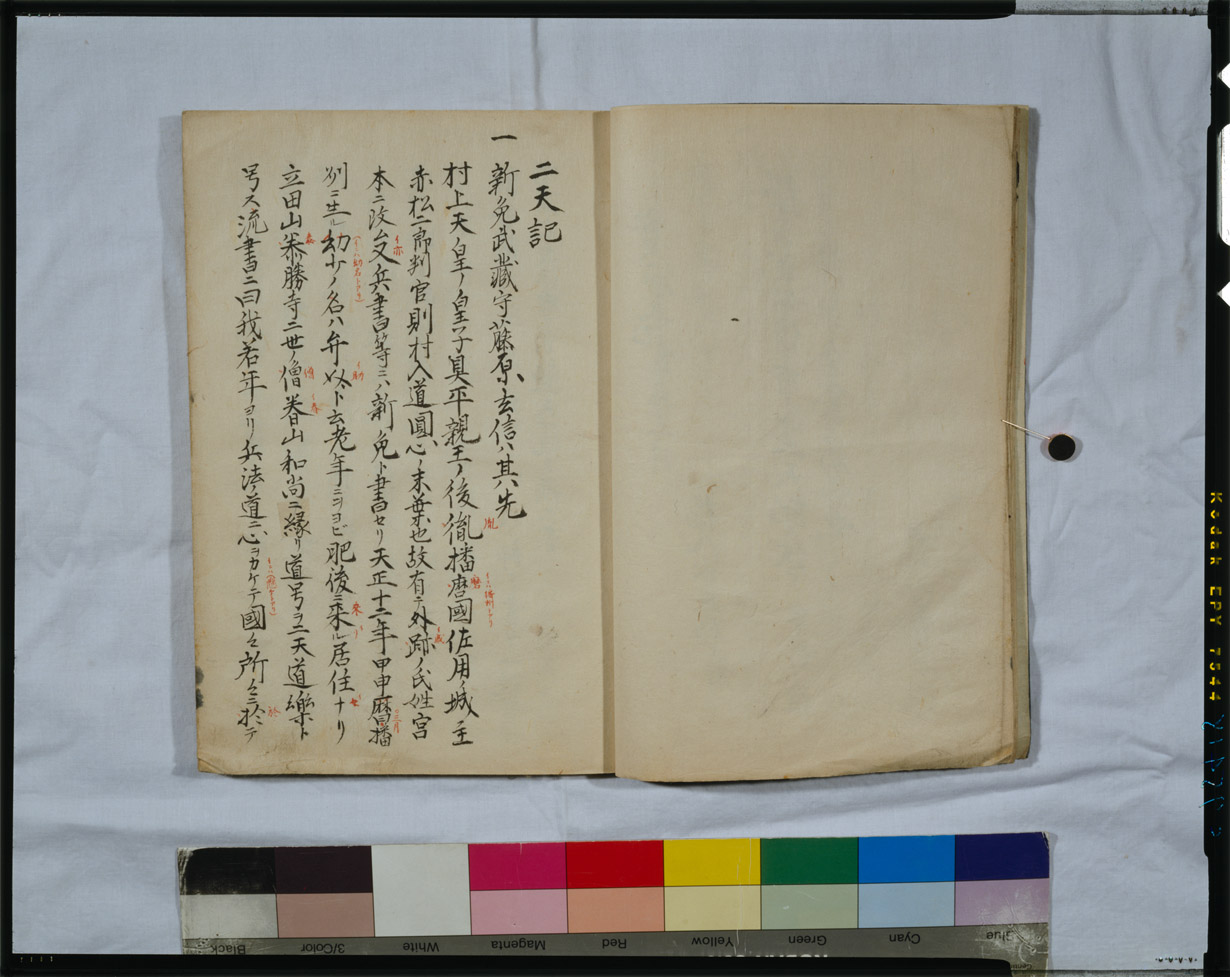 二天記
一 新免武藏守藤原玄信ハ其先
村上天皇ノ皇子具平親王ノ後胤播磨國佐用城主
赤松二郎判官則村入道圓心ノ末葉也故有テ外跡ノ氏姓宮
本ニ改ム 兵書等ニハ新免ト書セリ天正十二年甲申 播
州ニ生ル幼少ノ名ハ弁 ト云老年ニヲヨビ肥後ニ来ル居住ナリ
立田山泰勝寺二世ノ僧春山和尚ニ縁リ道号ヲ二天道樂ト
号ス流書ニ曰我若年ヨリ兵法ノ道ニ心ヲカケテ國々所々ニ於テ
亦
助
胤
磨
春
僧
来
於
三月
Kodak EPY 7544
Black
3/Color
White
Magenta
Red
Yellow
Green
Cyan
Blue